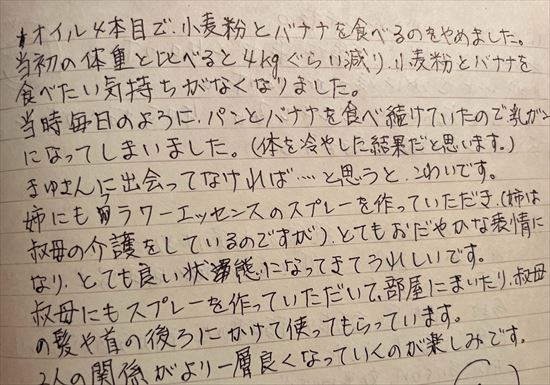 オイル4本目で、小麦粉とバナナを食べるのをやめました。
当初の体重と比べると4kgぐらい減り、小麦粉とバナナを
食べたい気持ちがなくなりました。
当時毎日のように、パンとバナナを食べ続けていたので、乳がン
になってしまいました。(体を冷やした結果だと思います。)
まゆさんに出会ってなければ…と思うと、こわいです。
姉にもフラワーエッセンスのスプレーを作っていただき、(姉は
叔母の介護をしているのですが)、とてもおだやかな表情に
なり、とても良い状態になってきてうれしいです。
叔母にもスプレーを作っていただいて、部屋にまいたり、叔母
の髪や首の後ろにかけて使ってもらっています。
2人の関係がより一層良くなっていくのが楽しみです。